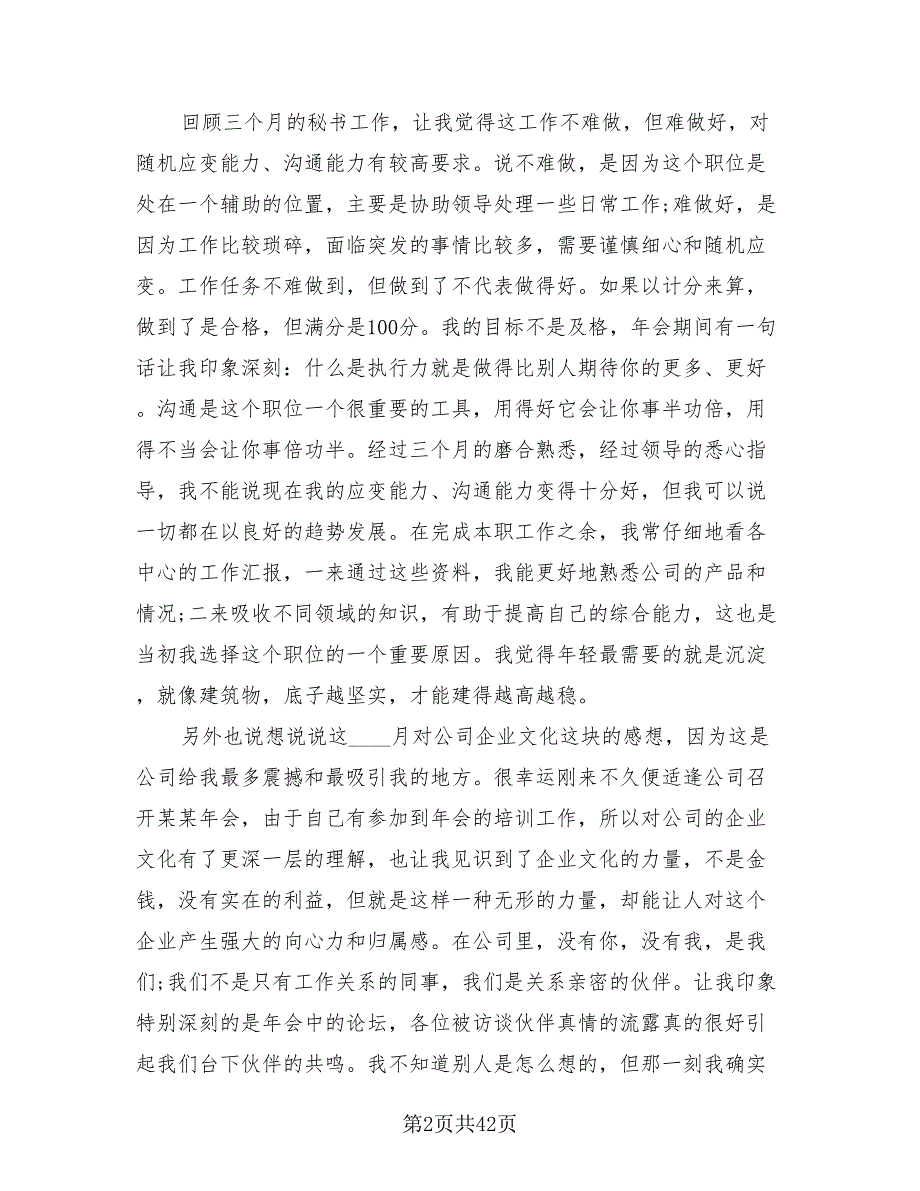 回顾三个月的秘书工作，让我觉得这工作不难做，但难做好，对
随机应变能力、沟通能力有较高要求。说不难做，是因为这个职位是
处在一个辅助的位置，主要是协助领导处理一些日常工作;难做好，是
因为工作比较琐碎，面临突发的事情比较多，需要谨慎细心和随机应
变。工作任务不难做到，但做到了不代表做得好。如果以计分来算，
做到了是合格，但满分是100分。我的目标不是及格，年会期间有一句
话让我印象深刻：什么是执行力就是做得比别人期待你的更多、更好
。沟通是这个职位一个很重要的工具，用得好它会让你事半功倍，用
得不当会让你事倍功半。经过三个月的磨合熟悉，经过领导的悉心指
导，我不能说现在我的应变能力、沟通能力变得十分好，但我可以说
一切都在以良好的趋势发展。在完成本职工作之余，我常仔细地看各
中心的工作汇报，一来通过这些资料，我能更好地熟悉公司的产品和
情况;二来吸收不同领域的知识，有助于提高自己的综合能力，这也是
当初我选择这个职位的一个重要原因。我觉得年轻最需要的就是沉淀
，就像建筑物，底子越坚实，才能建得越高越稳。
另外也说想说说这____月对公司企业文化这块的感想，因为这是
公司给我最多震撼和最吸引我的地方。很幸运刚来不久便适逢公司召
开某某年会，由于自己有参加到年会的培训工作，所以对公司的企业
文化有了更深一层的理解，也让我见识到了企业文化的力量，不是金
钱，没有实在的利益，但就是这样一种无形的力量，却能让人对这个
企业产生强大的向心力和归属感。在公司里，没有你，没有我，是我
们;我们不是只有工作关系的同事，我们是关系亲密的伙伴。让我印象
特别深刻的是年会中的论坛，各位被访谈伙伴真情的流露真的很好引
起我们台下伙伴的共鸣。我不知道别人是怎么想的，但那一刻我确实
第2页共42页